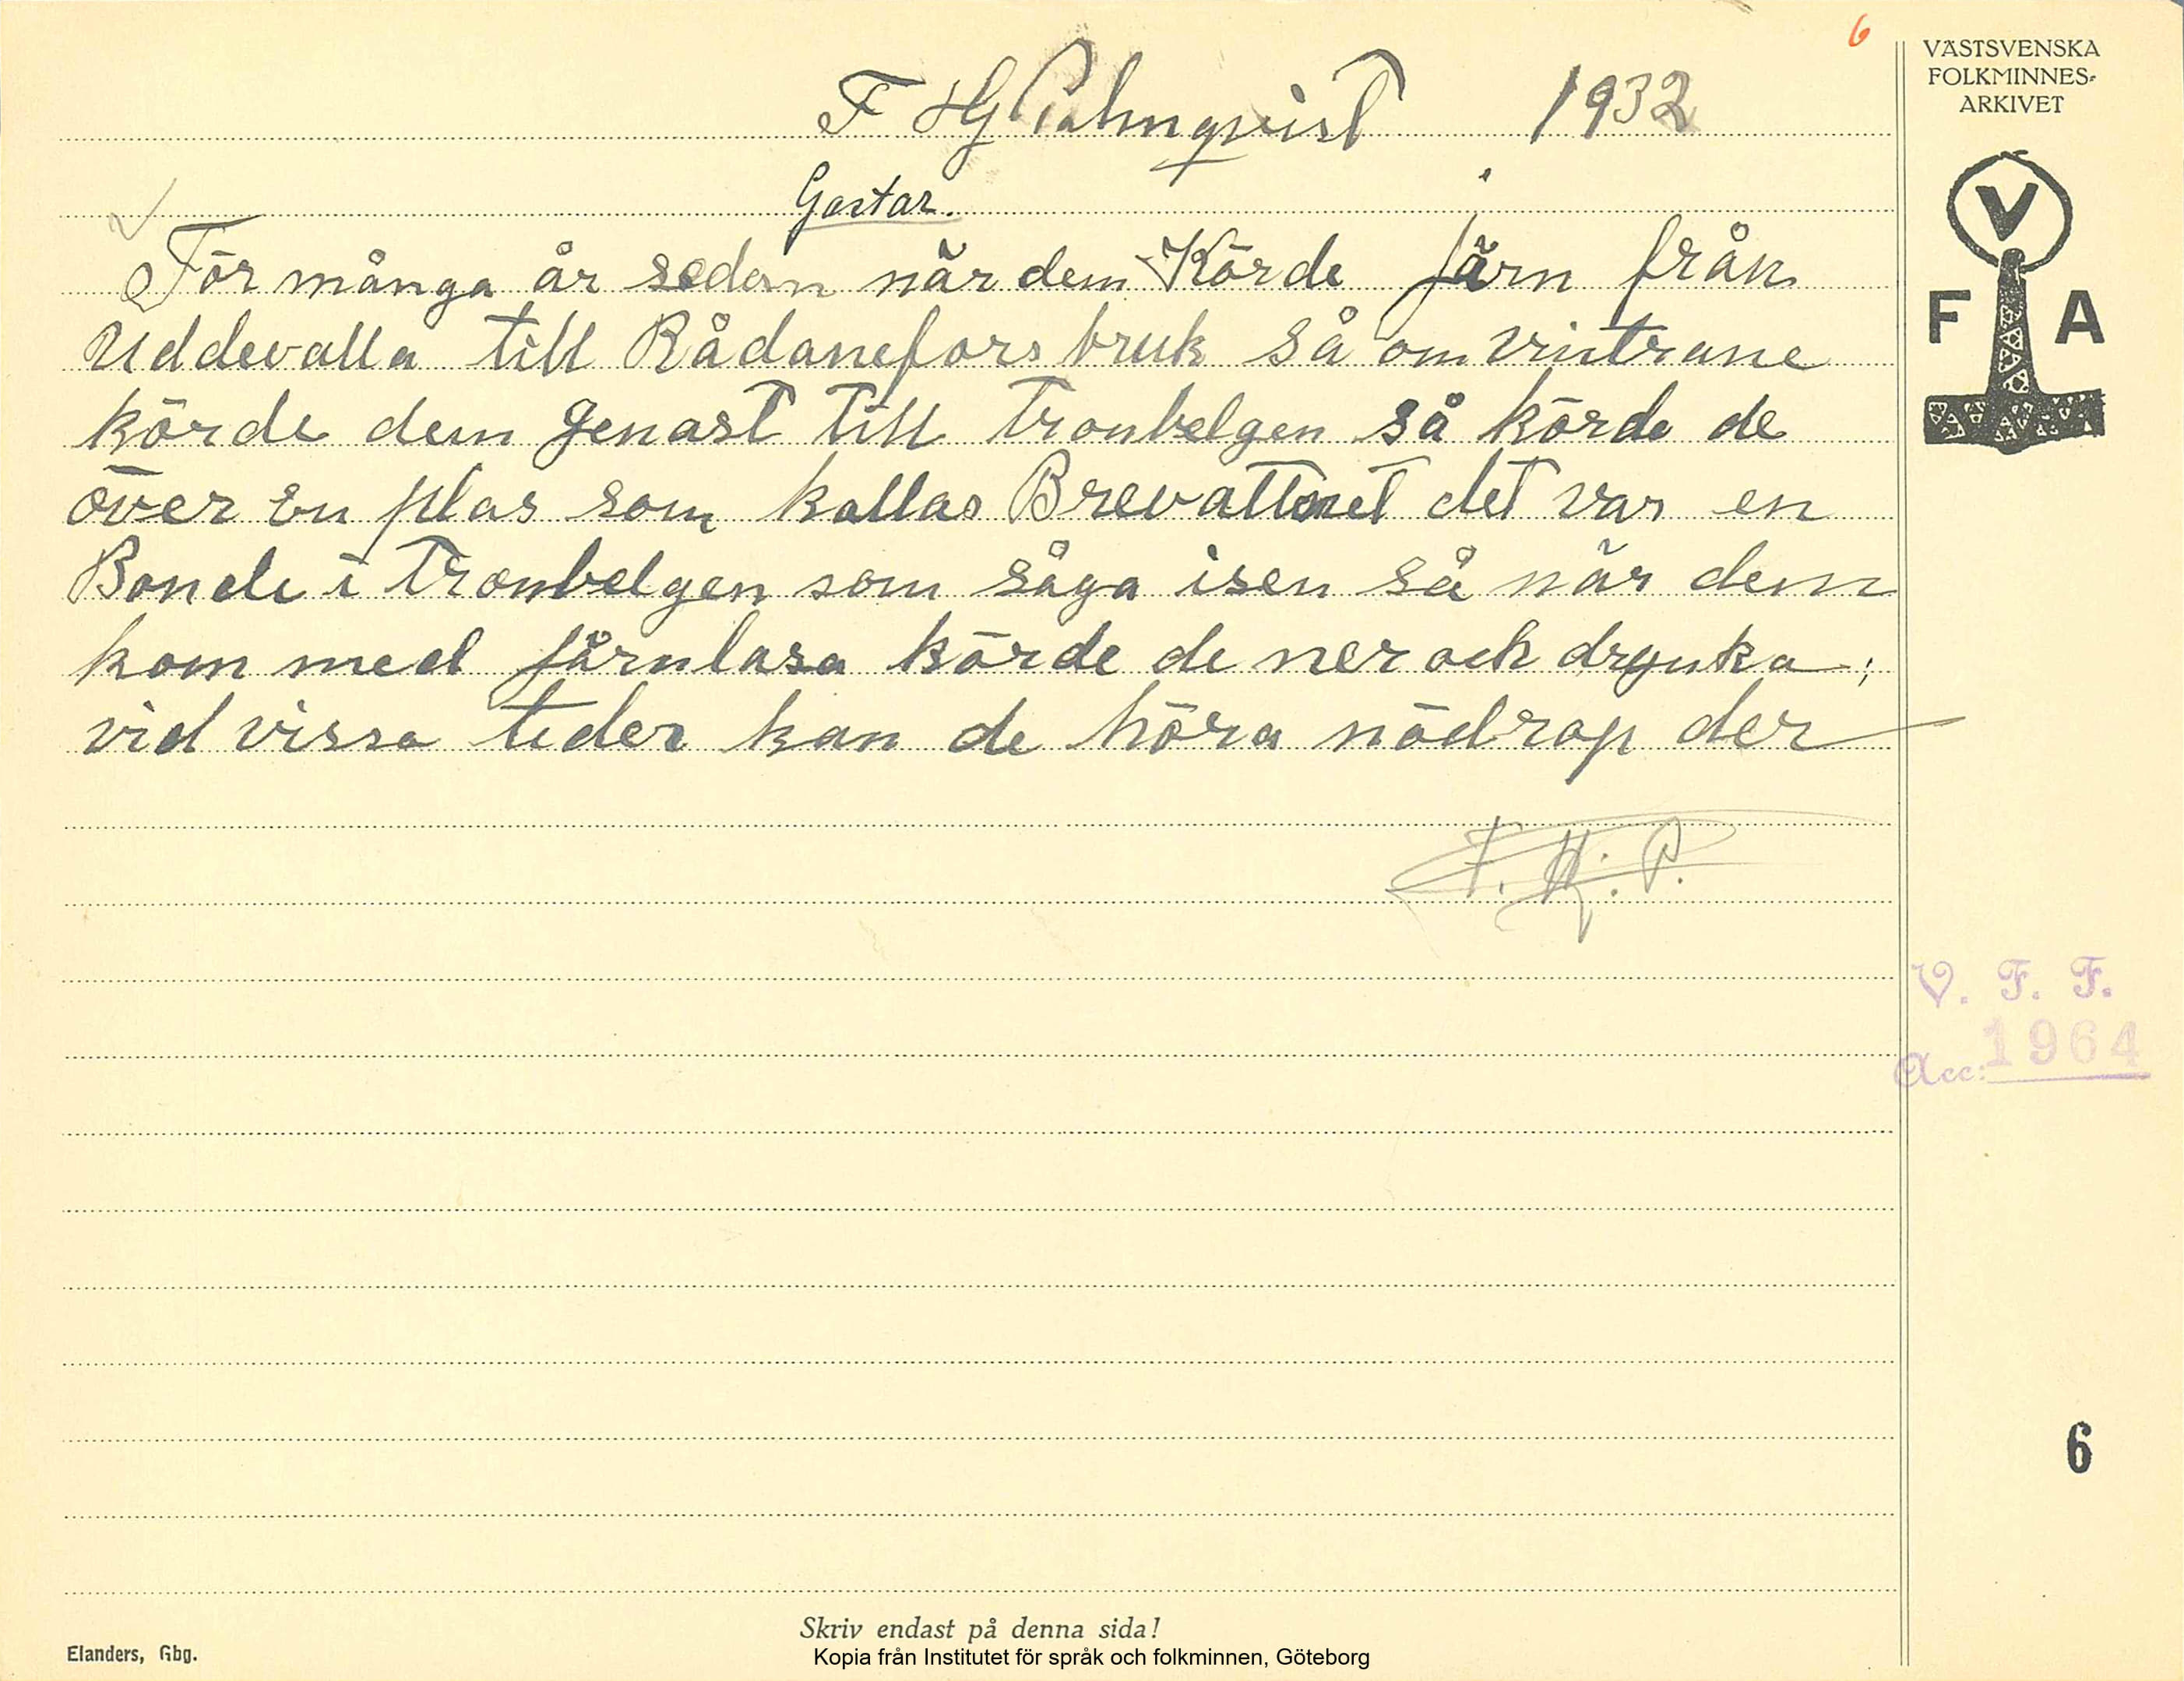 6
VÄSTSVENSKA
FOLKMINNES-
ARKIVET
F Hj Palmqvist 1932
Gastar.
V
F A
För många år sedan när dem Körde järn från
Uddevalla till Rådanefors bruk så om vintrane
körde dem genast till Tronbelgen så körde de
över en plas som kallas Brevattnet det var en
Bonde i Tronbelgen som såga isen så när dem
kom med järnlasa körde de ner och drynka;
vid vissa tider kan de höra nödrop der
F. Hj. P.
V. F. F.
Acc: 1964
6
Skriv endast på denna sida!
Elanders, Gbg.
Kopia från Institutet för språk och folkminnen, Göteborg